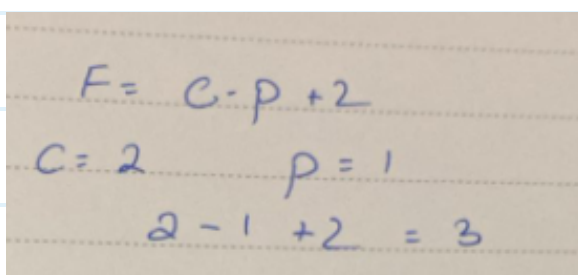 F= C-P +2
C= 2 P = 1
2 - 1 +2 = 3